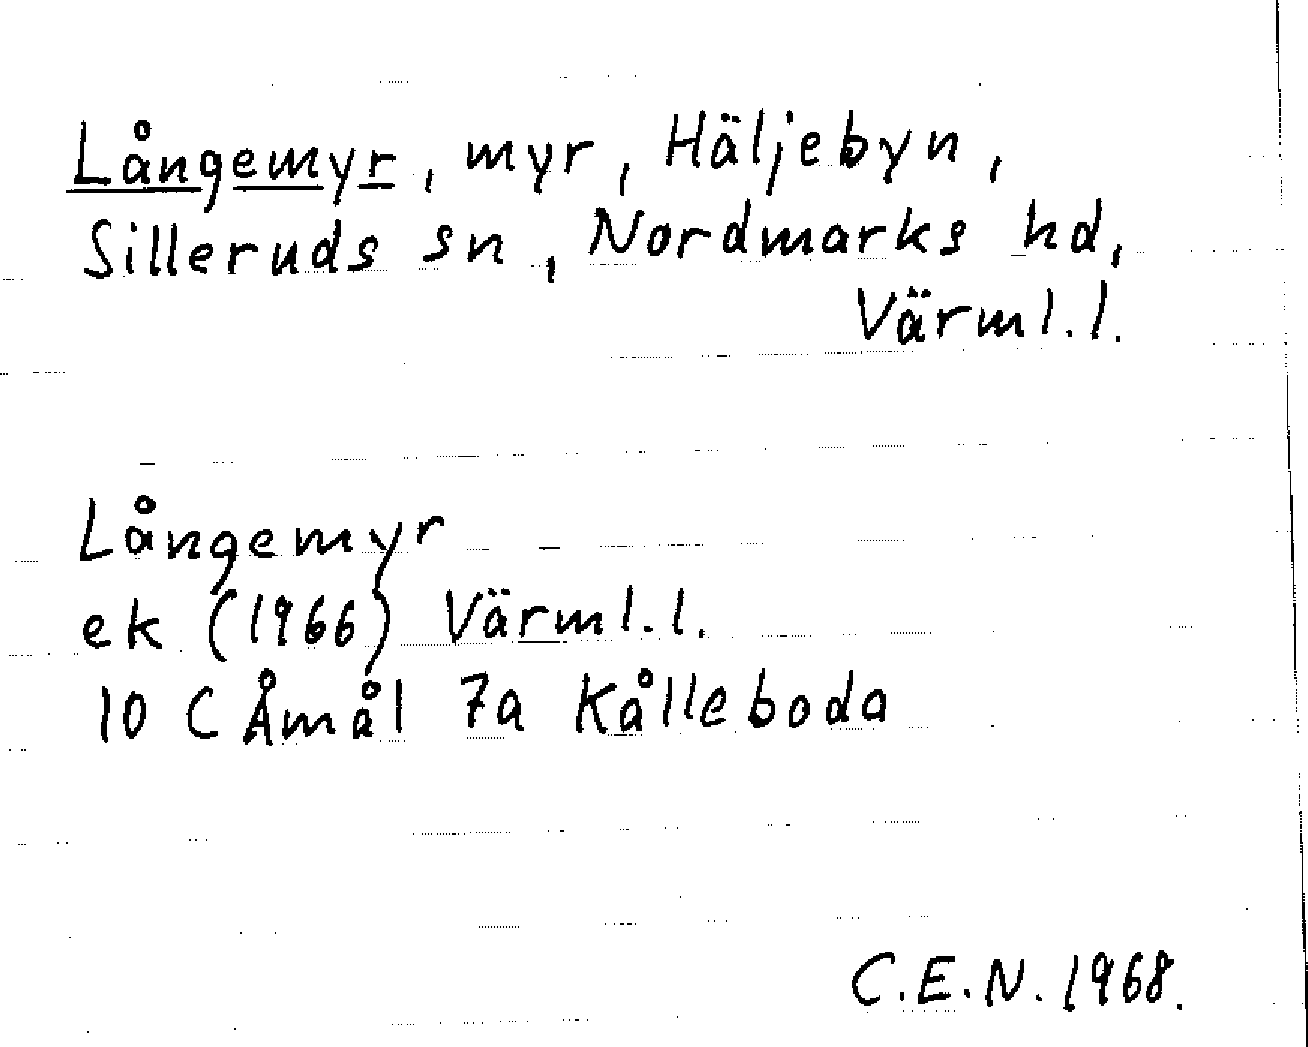 Långemyr, myr, Häljebyn,
Silleruds sn, Nordmarks hd,
Värml.l.
Långemyr
ek (1966) Värml.l.
10 C Åmål 7a Kålleboda
C.E.N. 1968.